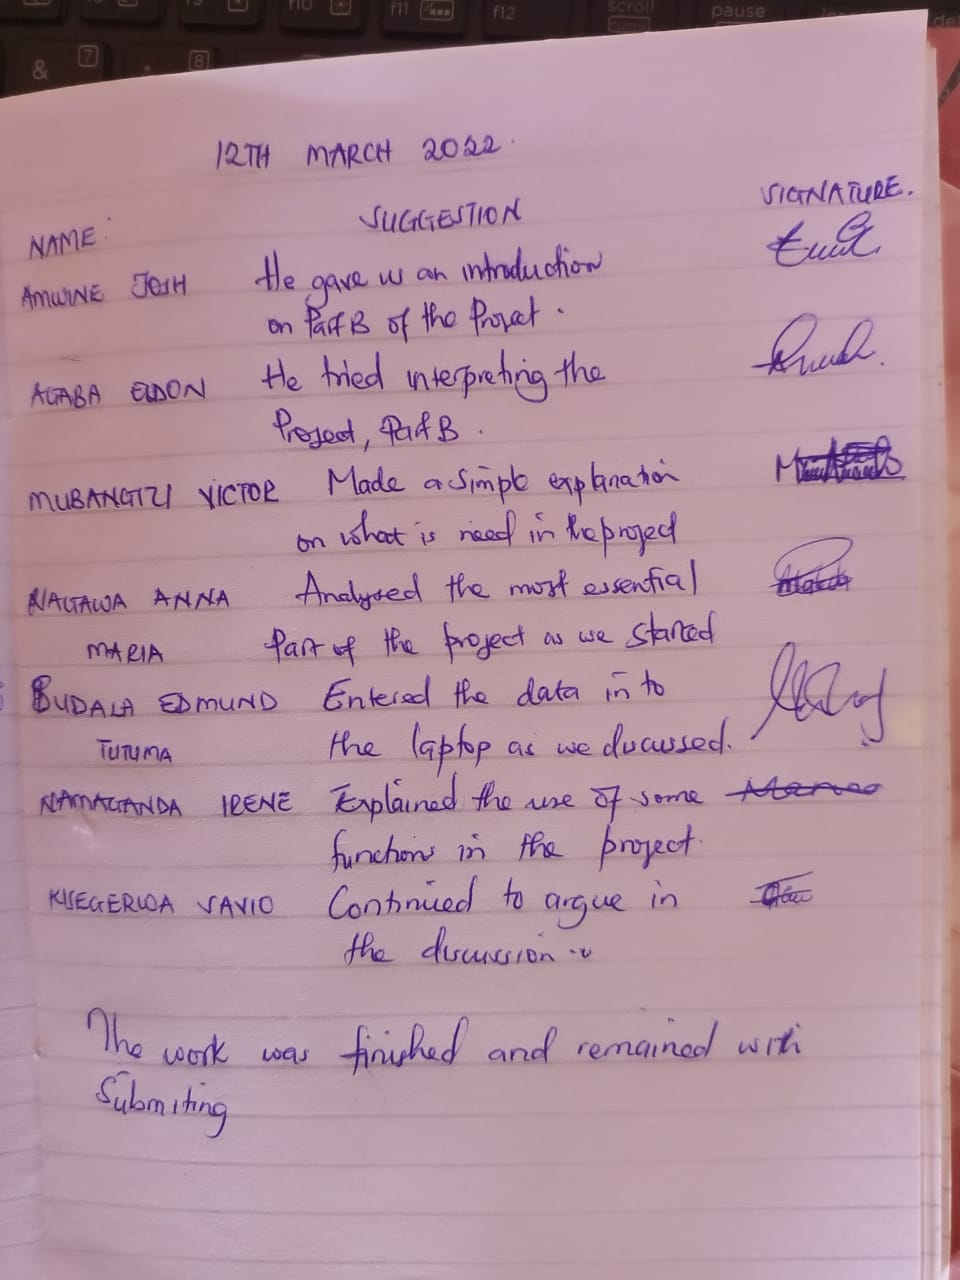 12TH MARCH 2022.
NAME: SUGGESTION SIGNATURE.
AMWINE JOSH He gave us an introduction
on Part B of the Project.
AGABA ELDON He tried interpreting the
Project, Part B.
MUBANGIZI VICTOR Made a simple explanation
on what is need in the project
NAGAWA ANNA Analysed the most essential
MARIA Part of the project as we started
BUDALA EDMUND Entered the data in to
TUTUMA the laptop as we discussed.
NAMAGANDA IRENE Explained the use of some
functions in the project.
KISEGERWA SAVIO Continued to argue in
the discussion
The work was finished and remained with
Submiting
& 7 8
f10 f11 f12 scroll pause